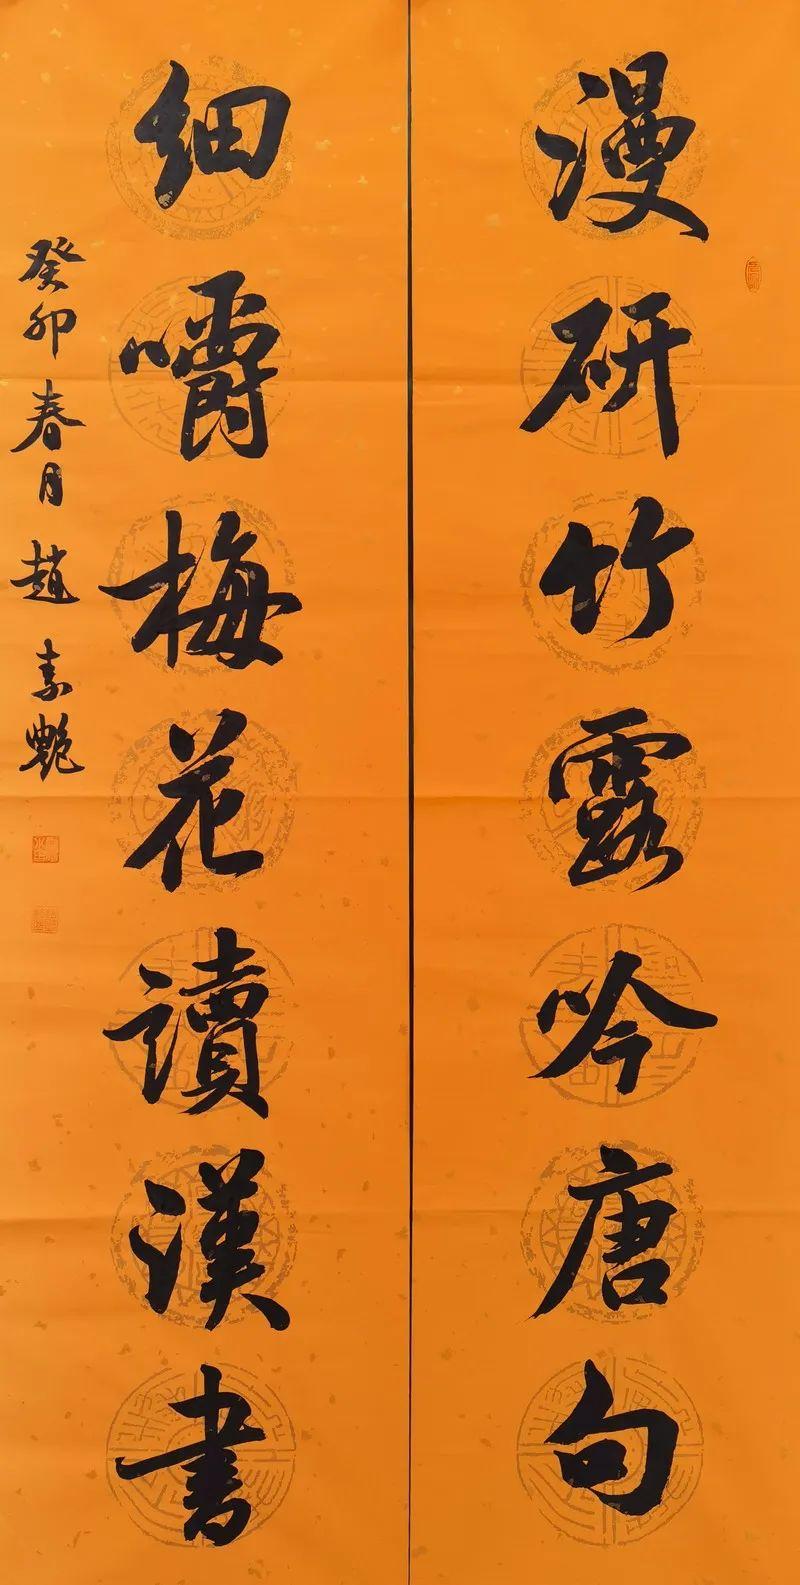 漫研竹露吟唐句
細嚼梅花讀漢書
癸卯春月趙素艷